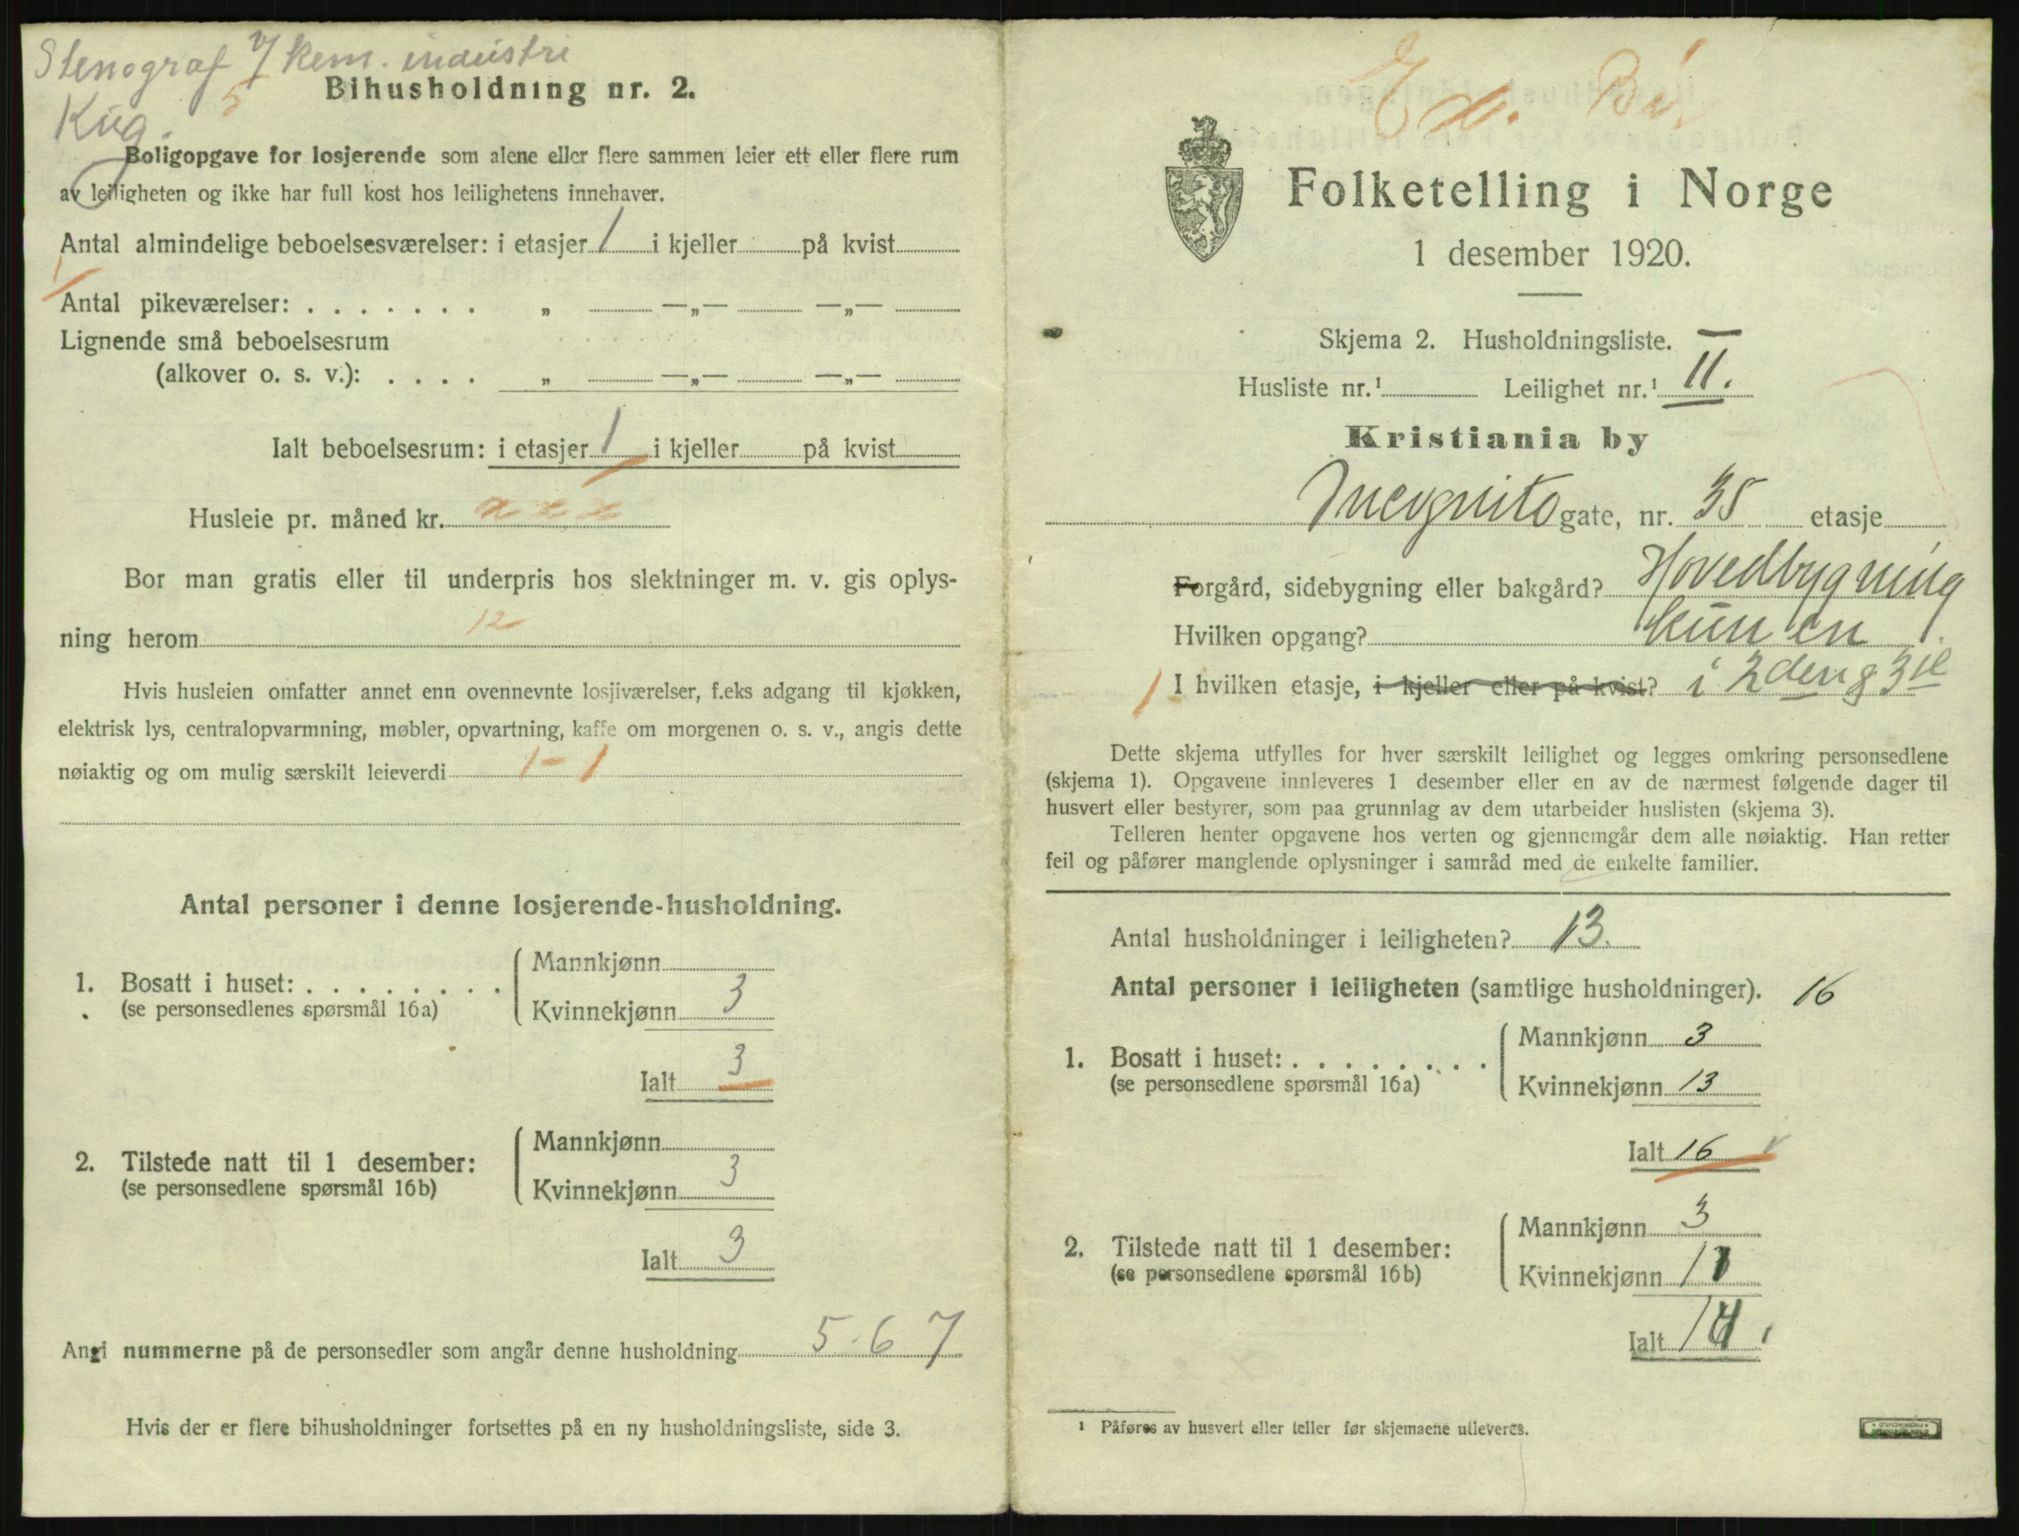 Stenograf v/ kem. industri
5
Kug.
Bihusholdning nr. 2.
Boligopgave for losjerende som alene eller flere sammen leier ett eller flere rum
av leiligheten og ikke har full kost hos leilighetens innehaver.
Antal almindelige beboelsesværelser: i etasjer 1 i kjeller på kvist
1
Antal pikeværelser: . . . . . . . „ —„— —„—
Lignende små beboelsesrum
(alkover o. s. v.): . . . . „ —„— —„—
Ialt beboelsesrum: i etasjer 1 i kjeller på kvist
Husleie pr. måned kr. x x x
Bor man gratis eller til underpris hos slektninger m. v. gis oplys-
ning herom 12
Hvis husleien omfatter annet enn ovennevnte losjiværelser, f.eks adgang til kjøkken,
elektrisk lys, centralopvarmning, møbler, opvartning, kaffe om morgenen o. s. v., angis dette
nøiaktig og om mulig særskilt leieverdi 1-1
Antal personer i denne losjerende-husholdning.
1. Bosatt i huset: . . . . . . . .
(se personsedlenes spørsmål 16a)
Mannkjønn
Kvinnekjønn 3
Ialt 3
2. Tilstede natt til 1 desember:
(se personsedlene spørsmål 16b)
Mannkjønn
Kvinnekjønn 3
Ialt 3
Angi nummerne på de personsedler som angår denne husholdning 5-6 7
Hvis der er flere bihusholdninger fortsettes på en ny husholdningsliste, side 3.
Folketelling i Norge
1 desember 1920.
Skjema 2. Husholdningsliste.
Husliste nr.¹ Leilighet nr.¹ II.
Kristiania by
Incognito gate, nr. 35 etasje
Forgård, sidebygning eller bakgård? Hovedbygning
Hvilken opgang? kun en
1 I hvilken etasje, i kjeller eller på kvist? i 2den og 3die
Dette skjema utfylles for hver særskilt leilighet og legges omkring personsedlene
(skjema 1). Opgavene innleveres 1 desember eller en av de nærmest følgende dager til
husvert eller bestyrer, som paa grunnlag av dem utarbeider huslisten (skjema 3).
Telleren henter opgavene hos verten og gjennemgår dem alle nøiaktig. Han retter
feil og påfører manglende oplysninger i samråd med de enkelte familier.
Antal husholdninger i leiligheten? 13.
Antal personer i leiligheten (samtlige husholdninger). 16
1. Bosatt i huset: . . . . . . . .
(se personsedlene spørsmål 16a)
Mannkjønn 3
Kvinnekjønn 13
Ialt 16
2. Tilstede natt til 1 desember:
(se personsedlene spørsmål 16b)
Mannkjønn 3
Kvinnekjønn 11
Ialt 14
¹ Påføres av husvert eller teller før skjemaene utleveres.